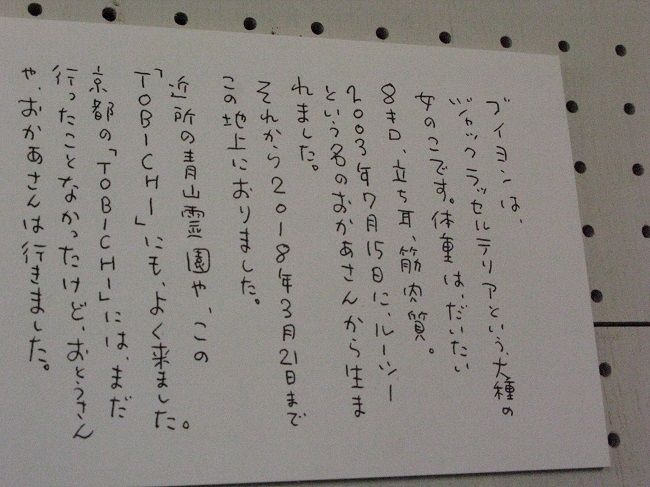 ブイヨンは、
ジャックラッセルテリアという、犬種の
女のこです。体重は、だいたい
8キロ、立ち耳、筋肉質。
2003年7月15日に、ルーシー
という名のおかあさんから生ま
れました。
それから2018年3月21日まで
この地上におりました。
近所の青山霊園や、この
「TOBICHI」にも、よく来ました。
京都の「TOBICHI」には、まだ
行ったことなかったけど、おとうさん
や、おかあさんは行きました。